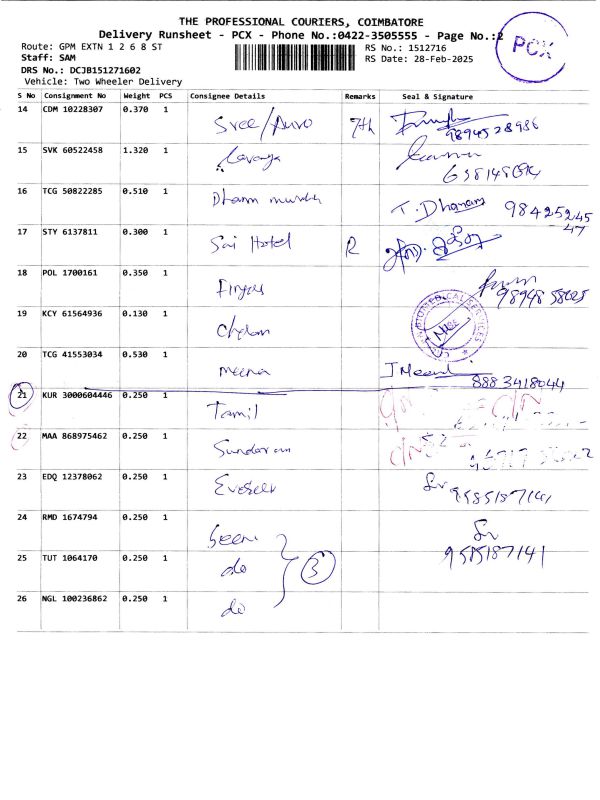 THE PROFESSIONAL COURIERS, COIMBATORE
Delivery Runsheet - PCX - Phone No.:0422-3505555 - Page No.:2
Route: GPM EXTN 1 2 6 8 ST
RS No.: 1512716
Staff: SAM
RS Date: 28-Feb-2025
DRS No.: DCJB151271602
Vehicle: Two Wheeler Delivery
PCX
S No Consignment No Weight PCS Consignee Details Remarks Seal & Signature
14 CDM 10228307 0.370 1 Sree/Auro 7th
9894528936
15 SVK 60522458 1.320 1 Lavanya
16 TCG 50822285 0.510 1 T. Dhanam 98425245
47
17 STY 6137811 0.300 1 Sai Hotel R
18 POL 1700161 0.350 1
19 KCY 61564936 0.130 1
20 TCG 41553034 0.530 1 meena J Meena
8883418044
21 KUR 3000604446 0.250 1 Tamil
22 MAA 868975462 0.250 1 Sundaram
23 EDQ 12378062 0.250 1 9585187141
24 RMD 1674794 0.250 1
25 TUT 1064170 0.250 1 do 3 9585187141
26 NGL 100236862 0.250 1 do